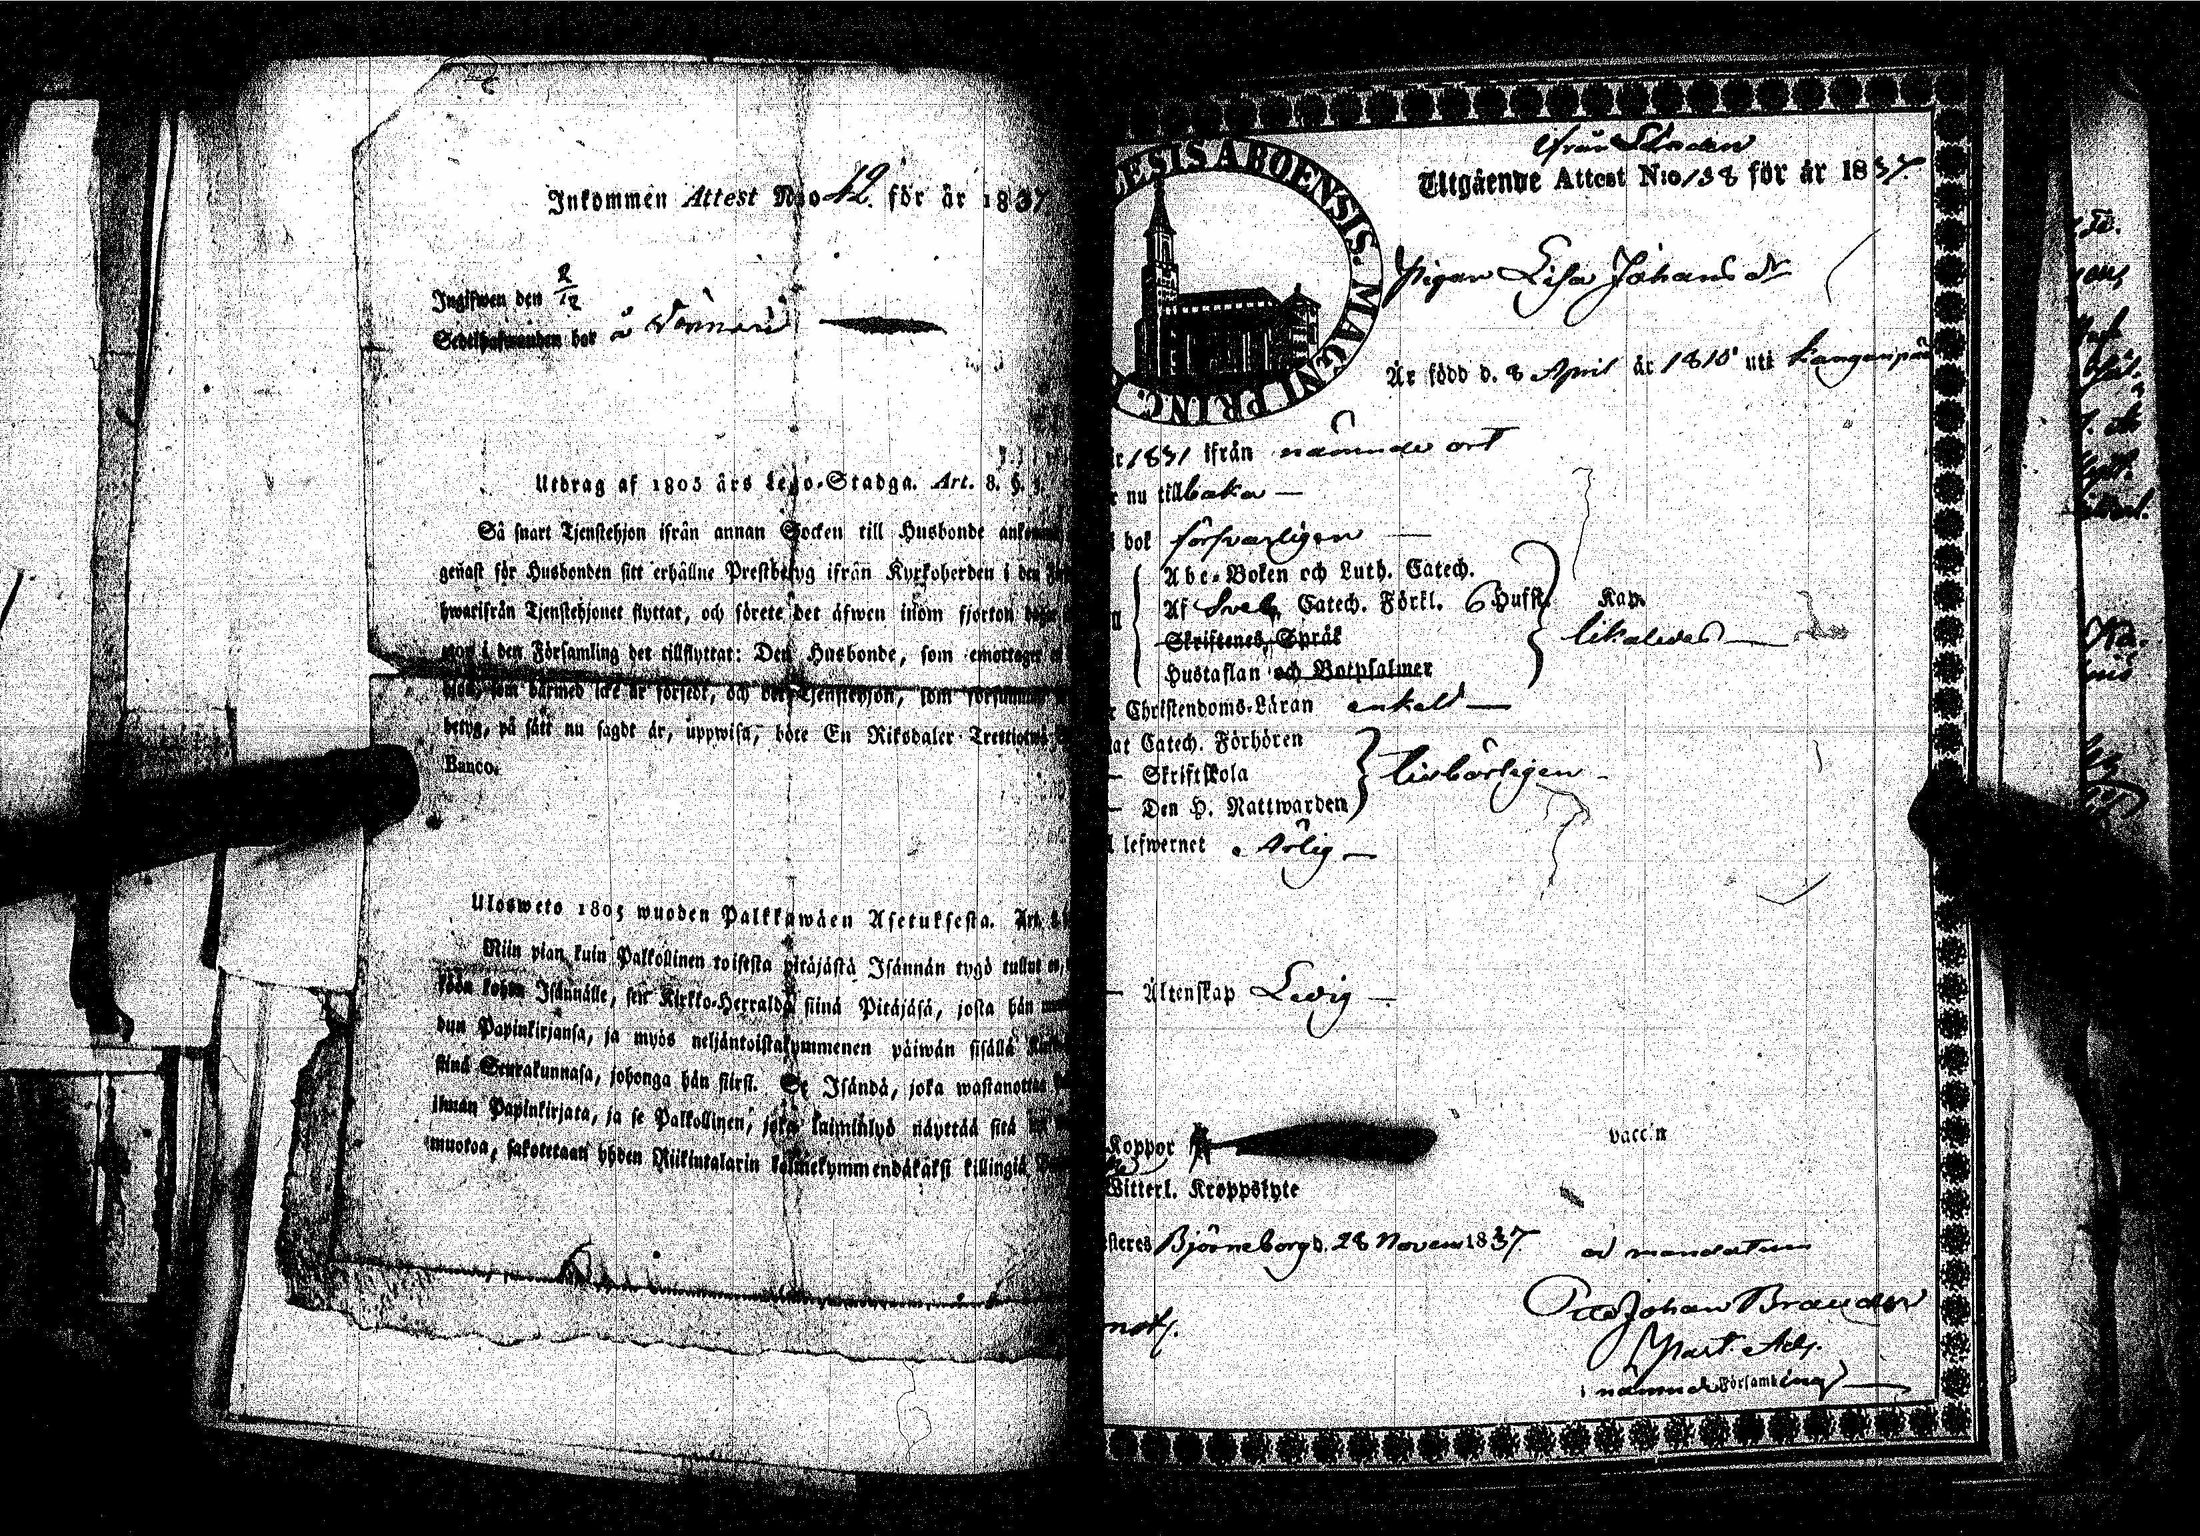 Inkommen Attest N:o 42. för år 1837
Ingifwen den 2/12
Sedelhafwanden bor å
Utdrag af 1805 års Lego-Stadga. Art. 8. §.
Så snart Tjenstehjon ifrån annan Socken till Husbonde
genast för Husbonden sitt erhållne Prestbetyg ifrån Kyrkoherden i den
hwarifrån Tjenstehjonet flyttat, och förete det äfwen inom fjorton
i den Församling det tillflyttat: Den Husbonde, som emottager
som dermed icke är försedt, och det Tjenstehjon, som försummar
betyg, på sätt nu sagdt är, uppwisa, böte En Riksdaler Trettiotwå
Banco.
Ulosweto 1805 wuoden Palkkawäen Asetuksesta. Art.
Niin pian kuin Palkollinen toisesta pitäjästä Isännän tygö tullut
Isännälle, sen Kirkko-Herralda siinä Pitäjäsä, josta hän
Papinkirjansa, ja myös neljäntoistakymmenen päiwän sisällä
siinä Seurakunnasa, johonga hän siirsi. Se Isändä, joka wastanottaa
ilman Papinkirjata, ja se Palkollinen, joka laiminlyö näyttää sitä
muotoa, sakotetaan yhden Riikintalarin kolmekymmendäkaksi killingiä
ESIS ABOENSIS. MAGNI PRINC.
ifrån Staden
Utgående Attest N:o 138 för år 1837.
Pigan Lisa Johansdr
Är född d. 8 April är 1815 uti Kanganpää
1831 ifrån nämnde ort
nu tillbaka —
bok försvarligen —
Abc-Boken och Luth. Catech.
Af Sveb. Catech. Förkl. 6 Hufst. Kap.
likaledes —
Skriftenes Språk
Hustaflan och Botpsalmer
Christendoms-Läran enkelt —
Catech. Förhören
— Skriftskola
— Den H. Nattwarden
lefwernet ärlig —
— Äktenskap Ledig —
Koppor
vacc:n
Witterl. Kroppslyte
Björneborg d. 28 Novem 1837.
ad mandatum
Otto Johan Brander
Past. Adj.
i nämnde Församling —